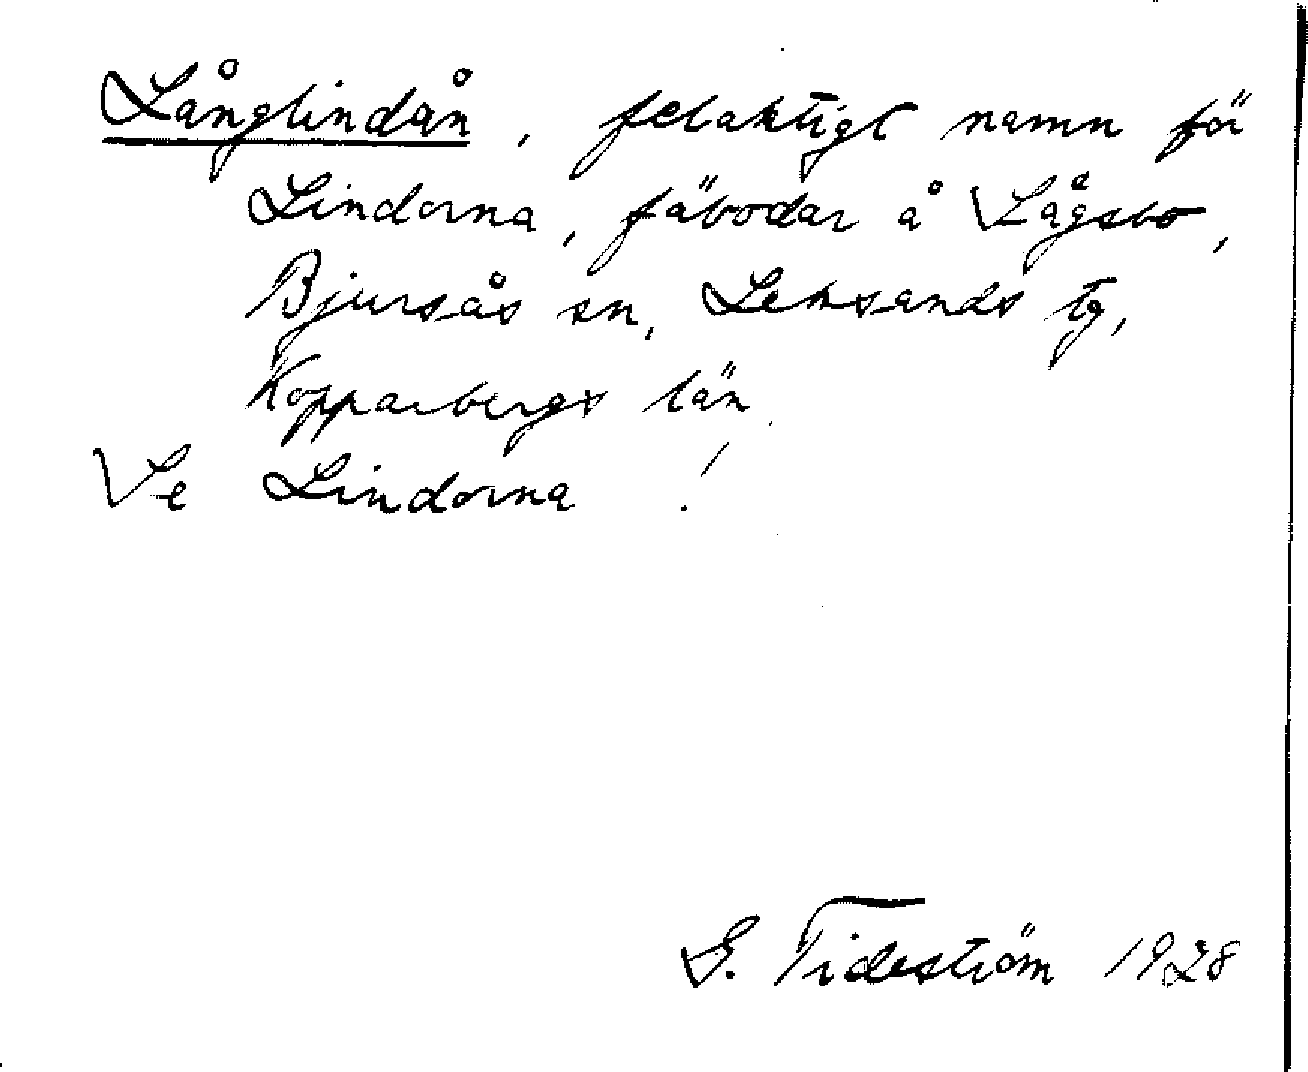 Långlindån, felaktigt namn för
Lindorna, fäbodar å Sågsbo,
Bjursås sn, Leksands tg,
Kopparbergs län.
Se Lindorna!
G. Tideström 1928